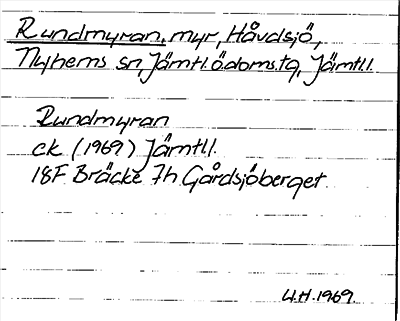 Rundmyran, myr, Håvdsjö,
Nyhems sn, Jämtl. ö. doms. tg, Jämtl.l.
Rundmyran
ek (1969) Jämtl.l.
18F Bräcke 7h Gårdsjöberget
U.H. 1969.